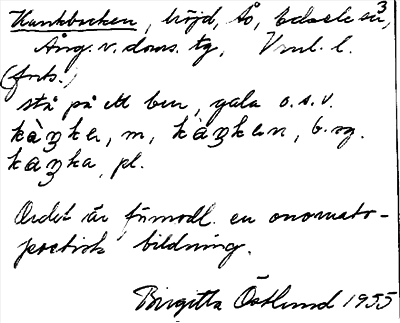 Kankbacken, höjd, Ås, Edsele sn, 3
Ång. v. doms. tg, Vnl. l.
(forts.)
stå på ett ben, gala o.s.v.
kàŋka, m, kàŋkan, b. sg.
kaŋka, pl.
Ordet är förmodl. en onomato-
poetisk bildning.
Birgitta Östlund 1955